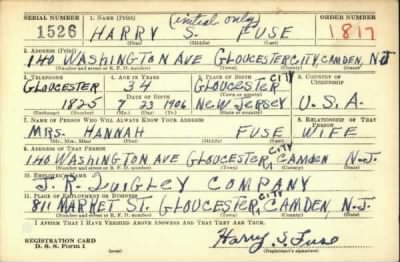 SERIAL NUMBER 1. NAME (Print) (initial only) ORDER NUMBER
1526 HARRY S. FUSE 1817
(First) (Middle) (Last)
2. ADDRESS (Print)
140 WASHINGTON AVE GLOUCESTER CITY, CAMDEN, N.J.
(Number and street or R. F. D. number) (Town) (County) (State)
3. TELEPHONE 4. AGE IN YEARS 5. PLACE OF BIRTH 6. COUNTRY OF CITIZENSHIP
GLOUCESTER 34 GLOUCESTER CITY
(Town or county)
DATE OF BIRTH
1825 7 23 1906 NEW JERSEY U.S.A.
(Exchange) (Number) (Mo.) (Day) (Yr.) (State or country)
7. NAME OF PERSON WHO WILL ALWAYS KNOW YOUR ADDRESS 8. RELATIONSHIP OF THAT PERSON
MRS. HANNAH FUSE WIFE
(Mr., Mrs., Miss) (First) (Middle) (Last)
9. ADDRESS OF THAT PERSON
140 WASHINGTON AVE GLOUCESTER, CITY CAMDEN N.J.
(Number and street or R. F. D. number) (Town) (County) (State)
10. EMPLOYER'S NAME
J. R. QUIGLEY COMPANY
11. PLACE OF EMPLOYMENT OR BUSINESS
811 MARKET ST. GLOUCESTER, CITY CAMDEN, N.J.
(Number and street or R. F. D. number) (Town) (County) (State)
I AFFIRM THAT I HAVE VERIFIED ABOVE ANSWERS AND THAT THEY ARE TRUE.
REGISTRATION CARD
D. S. S. Form 1 (over) Harry S. Fuse
(Registrant's signature)